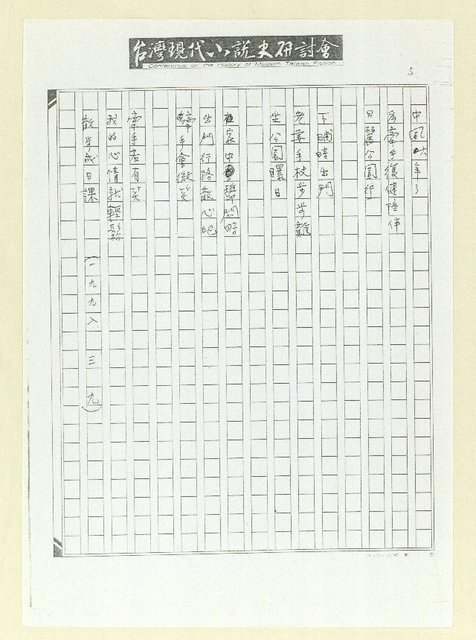 台灣現代小說史研討會
Conference on the History of Modern Taiwan Fiction
5
中風 年了
為牽手復健陪伴
日醫公園行
下晡時出門
老牽手杖步步難
坐公園曝日
在家中鬱悶時
出門行路散心吧
牽手會微笑
牽手若有笑
我的心情就輕鬆
散步成日課
(一九九八 三 九)